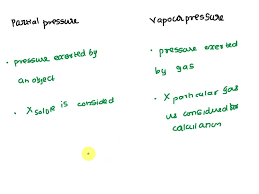 Partial pressure
• pressure exerted by
an object
• X solute is consided
Vapour pressure
• pressure exerted
by gas
• X particular gas
is considered for
calculation